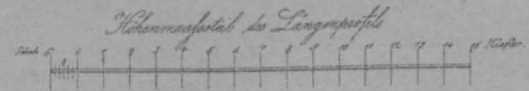 Höhenmaßstab des Längenprofils
5 0 1 2 3 4 5 6 7 8 9 10 11 12 13 14 15 Klafter.